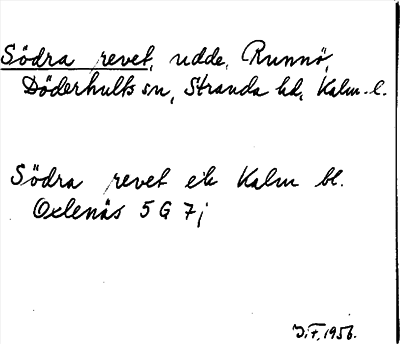 Södra revet, udde, Runnö,
Döderhults sn, Stranda hd, Kalm. l.
Södra revet ek Kalm bl.
Oxlenäs 5 G 7 j
J.F, 1956.